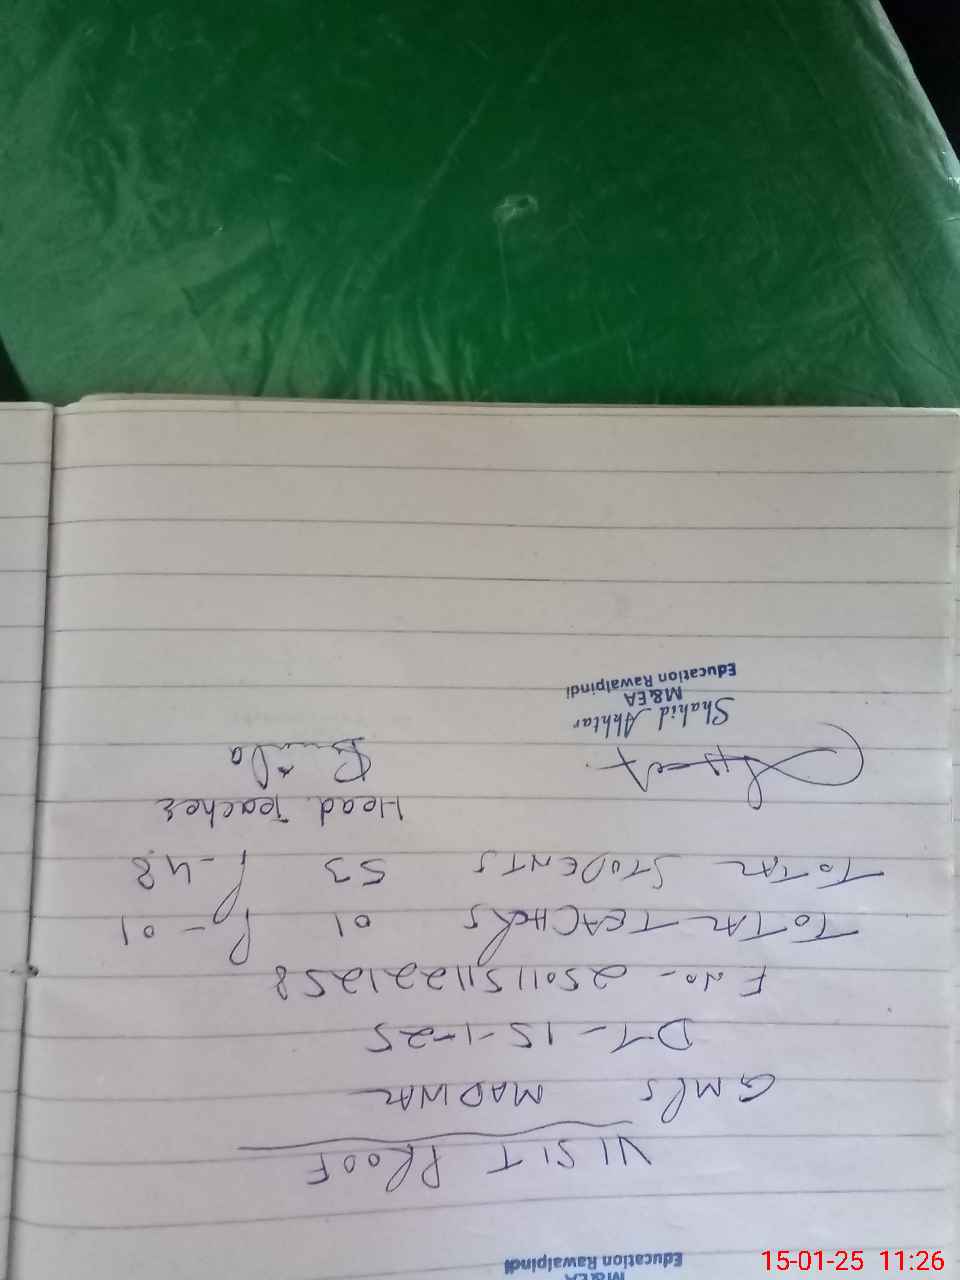 M&EA
Education Rawalpindi
VISIT PROOF
GMPS MADWAL
DT - 15-1-25
F No - 250115112221258
TOTAL TEACHERS 01 P - 01
TOTAL STUDENTS 53 P - 48
Head Teacher
Shahid Akhtar
M&EA
Education Rawalpindi
15-01-25 11:26